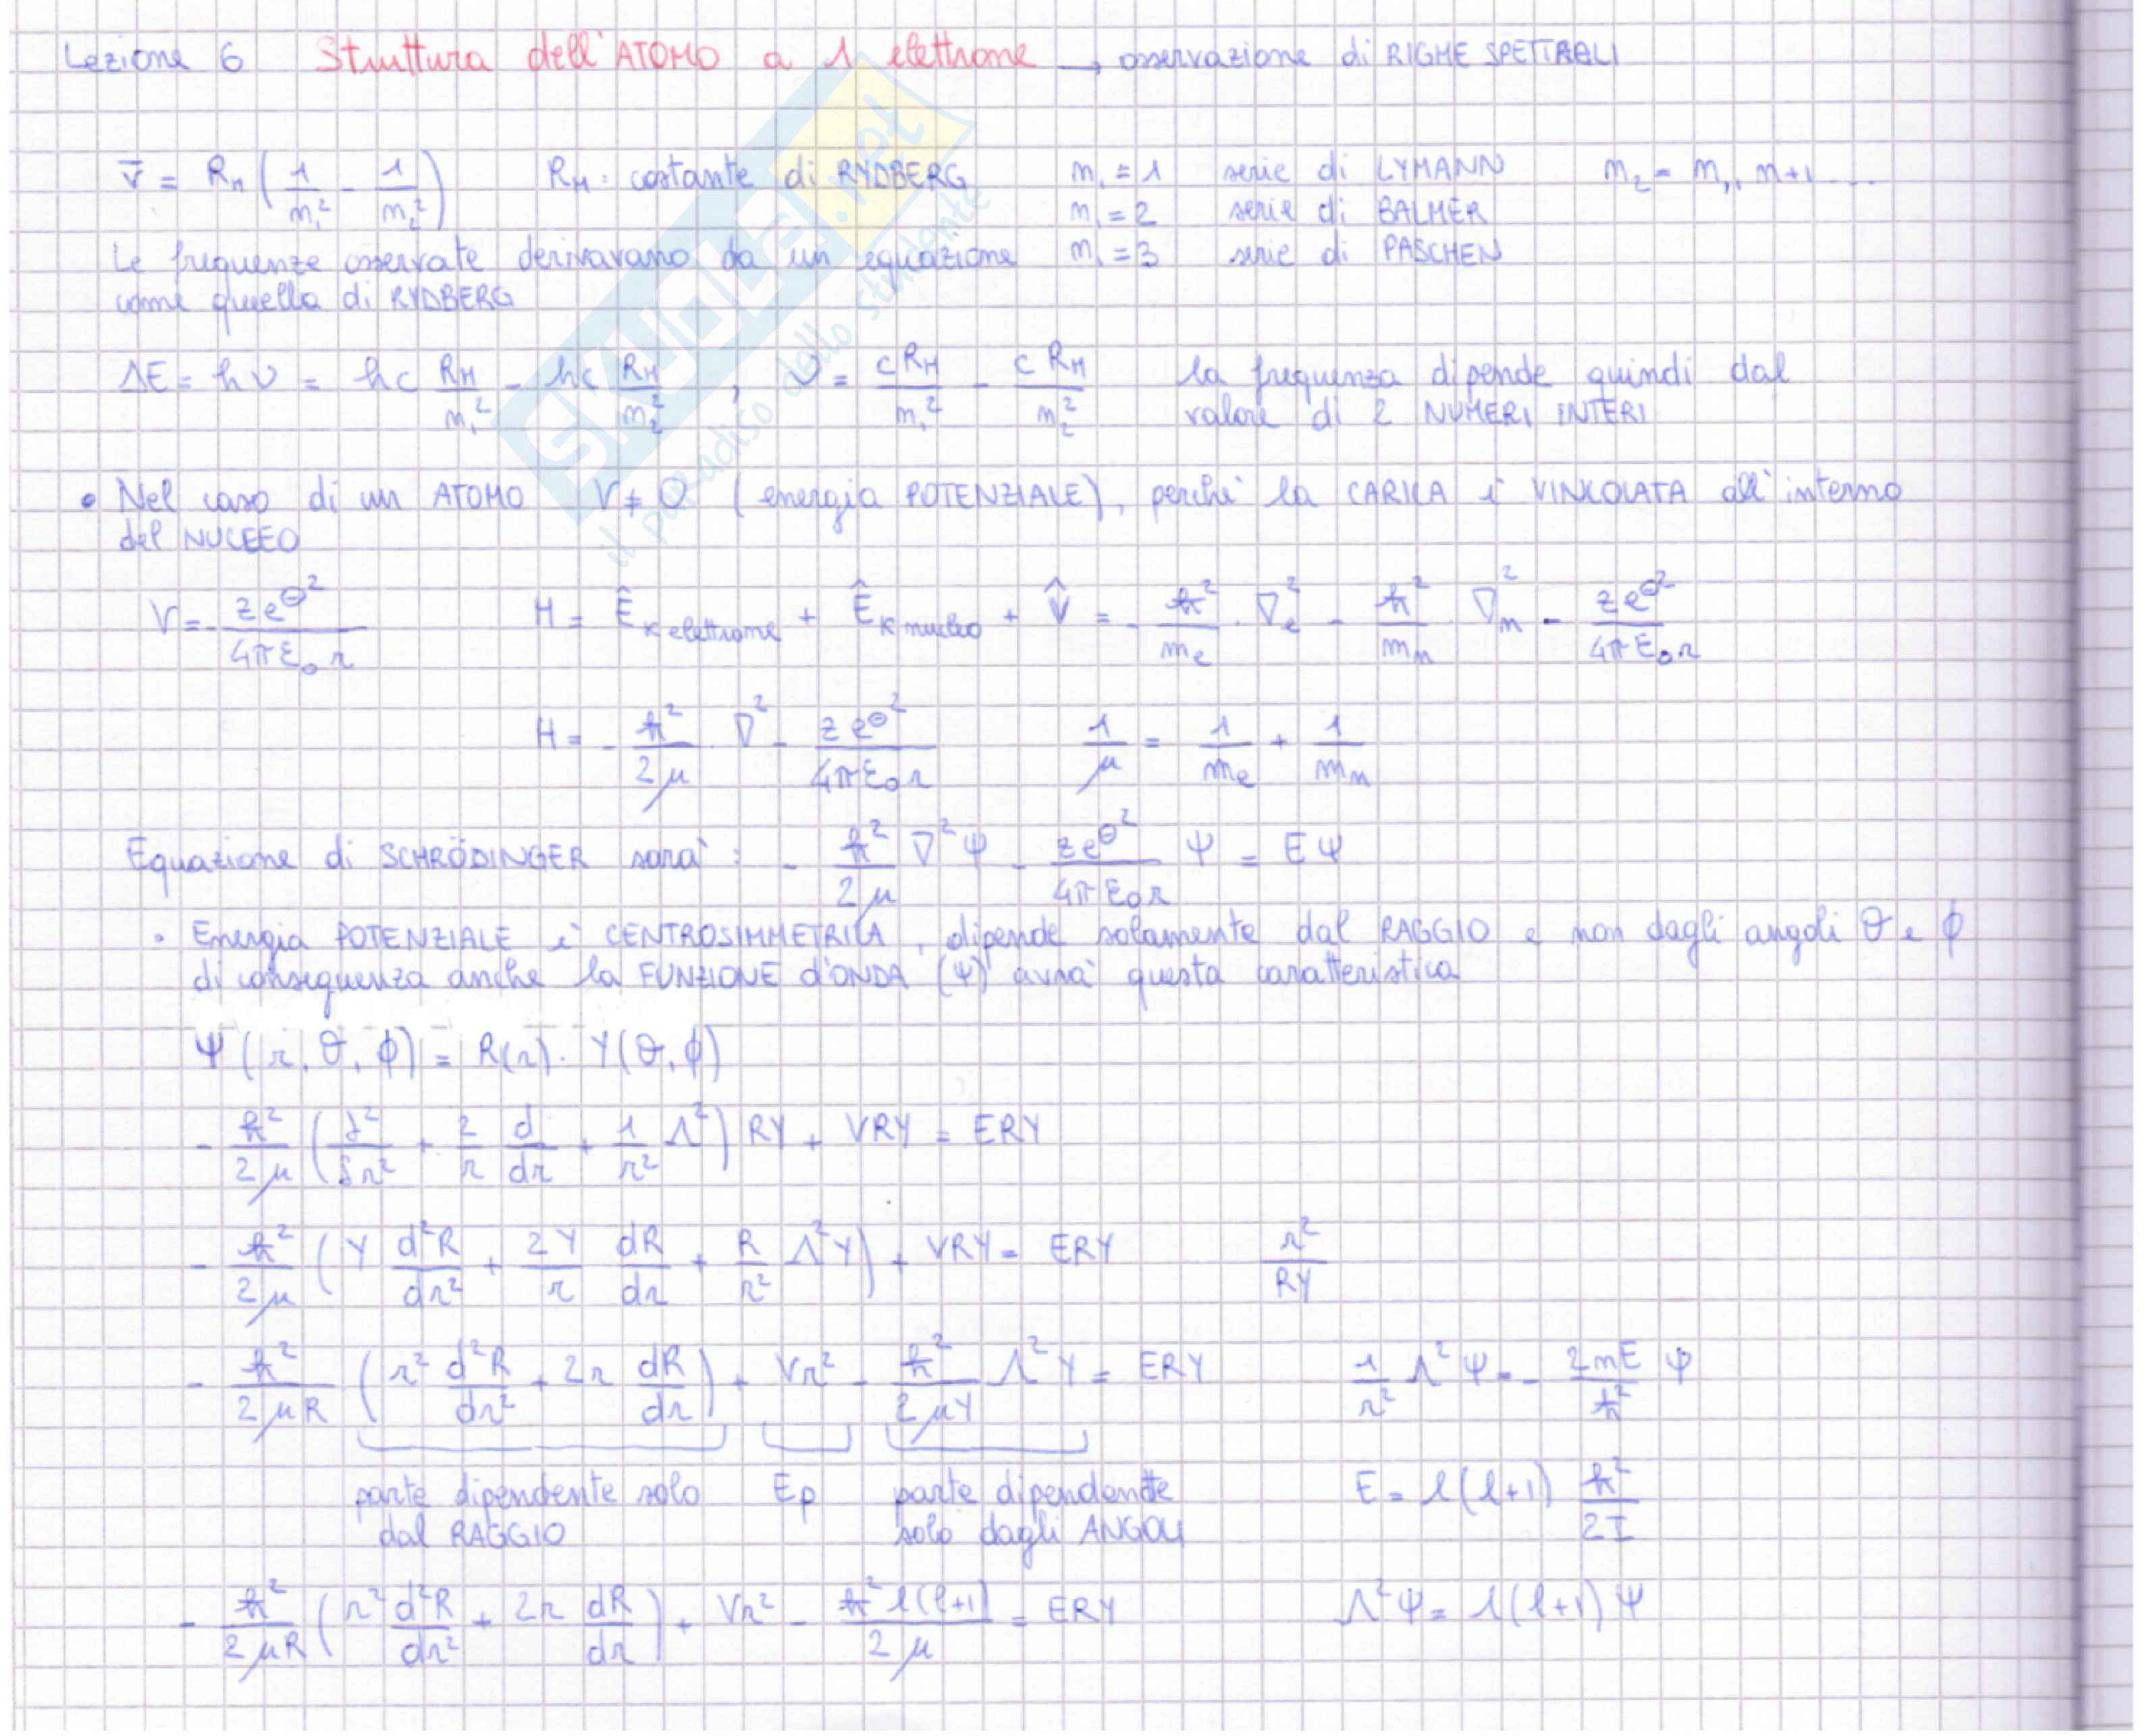 Lezione 6 Struttura dell'ATOMO a 1 elettrone → osservazione di RIGHE SPETTRALI
ν̄ = R_H (1/n₁² - 1/n₂²) R_H: costante di RYDBERG n₁ = 1 serie di LYMANN n₂ = n₁, n+1 ...
n₁ = 2 serie di BALMER
Le frequenze osservate derivavano da un equazione n₁ = 3 serie di PASCHEN
come quella di RYDBERG
ΔE = hν = hc R_H/n₁² - hc R_H/n₂² , ν = cR_H/n₁² - cR_H/n₂² la frequenza dipende quindi dal
valore di 2 NUMERI INTERI
• Nel caso di un ATOMO V ≠ 0 (energia POTENZIALE), perchè la CARICA è VINCOLATA all'interno
del NUCLEO
V = - ze⊖²/4πε₀r H = Ê_K elettrone + Ê_K nucleo + V̂ = - ħ²/m_e · ∇²_e - ħ²/m_n ∇²_n - ze⊖²/4πε₀r
H = - ħ²/2μ · ∇² - ze⊖²/4πε₀r 1/μ = 1/m_e + 1/m_n
Equazione di SCHRÖDINGER sarà: - ħ²/2μ ∇²Ψ - ze⊖²/4πε₀r Ψ = EΨ
• Energia POTENZIALE è CENTROSIMMETRICA, dipende solamente dal RAGGIO e non dagli angoli θ e ϕ
di conseguenza anche la FUNZIONE d'ONDA (Ψ) avrà questa caratteristica
Ψ(r, θ, ϕ) = R(r) · Y(θ, ϕ)
- ħ²/2μ (δ²/δr² + 2/r d/dr + 1/r² Λ²) RY + VRY = ERY
- ħ²/2μ (Y d²R/dr² + 2Y/r dR/dr + R/r² Λ²Y) + VRY = ERY r²/RY
- ħ²/2μR (r² d²R/dr² + 2r dR/dr) + Vr² - ħ²/2μY Λ²Y = ERY 1/r² Λ²Ψ = - 2mE/ħ² Ψ
parte dipendente solo Ep parte dipendente E = l(l+1) ħ²/2I
dal RAGGIO solo dagli ANGOLI
- ħ²/2μR (r² d²R/dr² + 2r dR/dr) + Vr² - ħ² l(l+1)/2μ = ERY Λ²Ψ = l(l+1)Ψ
SKUOLA.net
il paradiso dello studente